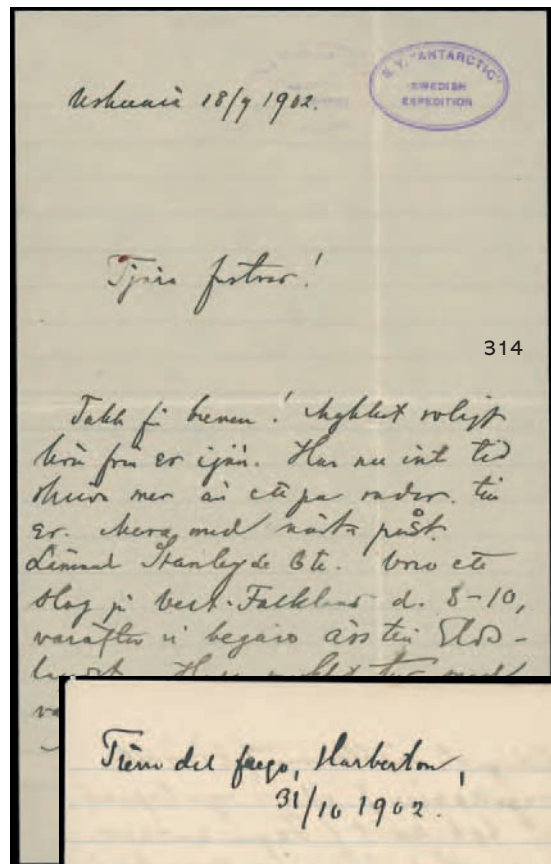 Ushuaia 18/9 1902.
S. Y. "ANTARCTIC"
SWEDISH
EXPEDITION
Tjära
314
Takk för breven! Mykket roligt
höra från er ijän. Har nu int tid
skriva mer än ett par rader till
er. Mera med nästa påst.
Stanley de 6te. Voro ett
slag på Vest-Falkland d. 8-10,
varäfter vi begåvo åss till Elds-
Tierra del fuego, Harberton,
31/10 1902.